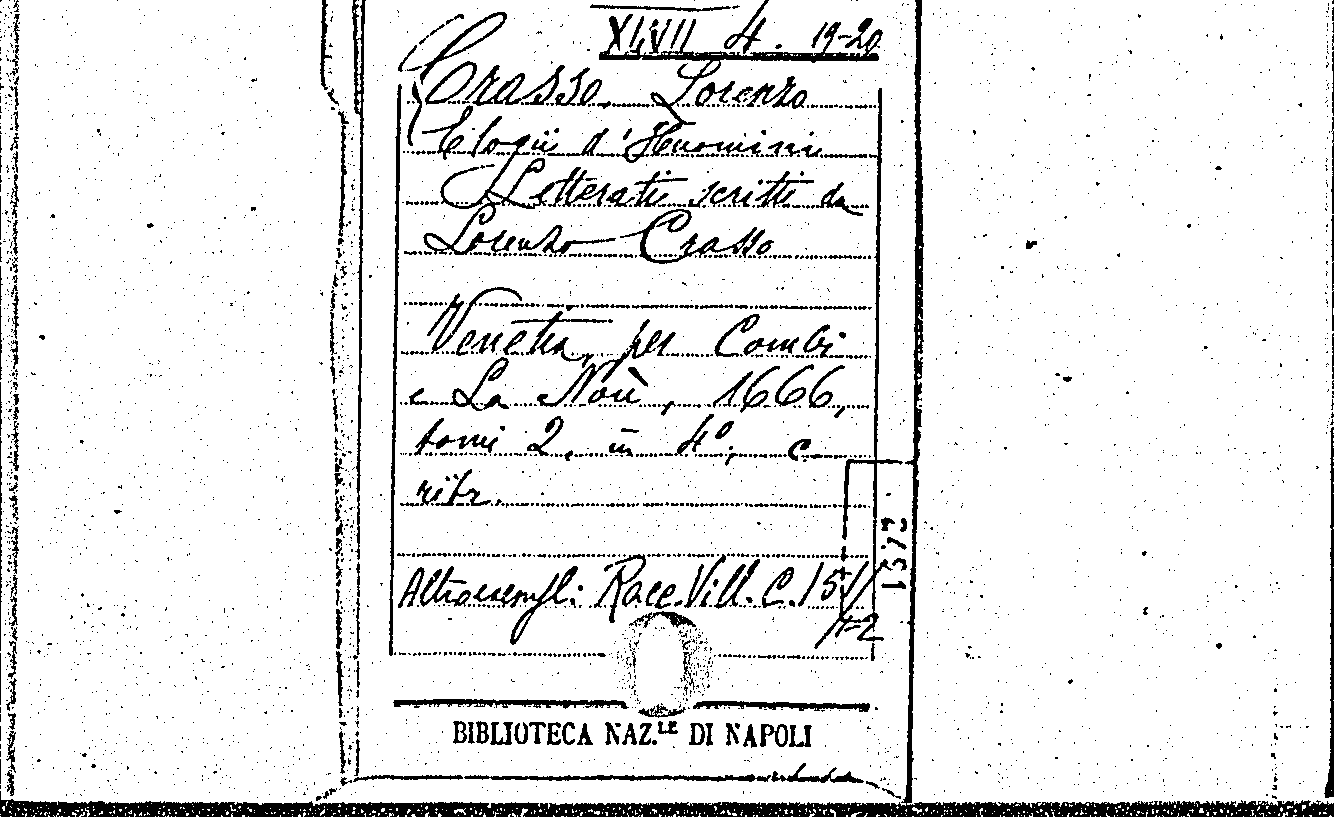 XLVII 4. 19-20
Crasso, Lorenzo
Elogii d'Huomini
Letterati scritti da
Lorenzo Crasso
Venetia, per Combi
e La Noù, 1666,
tomi 2, in 4°, c.
ritr.
Altro esempl: Racc. Vill. C. 151/
1-2
1572
BIBLIOTECA NAZ.LE DI NAPOLI